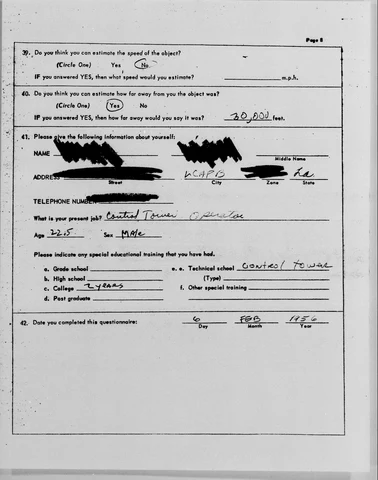 Page 8
39. Do you think you can estimate the speed of the object?
(Circle One) Yes No
IF you answered YES, then what speed would you estimate? m.p.h.
40. Do you think you can estimate how far away from you the object was?
(Circle One) Yes No
IF you answered YES, then how far away would you say it was? 30,000 feet.
41. Please give the following information about yourself:
NAME
Middle Name
ADDRESS La
Street City Zone State
TELEPHONE NUMBER
What is your present job? Control Tower Operator
Age 22.5 Sex Male
Please indicate any special educational training that you have had.
a. Grade school e. e. Technical school Control Tower
b. High school (Type)
c. College 2 years f. Other special training
d. Post graduate
42. Date you completed this questionnaire: 6 FEB 1956
Day Month Year